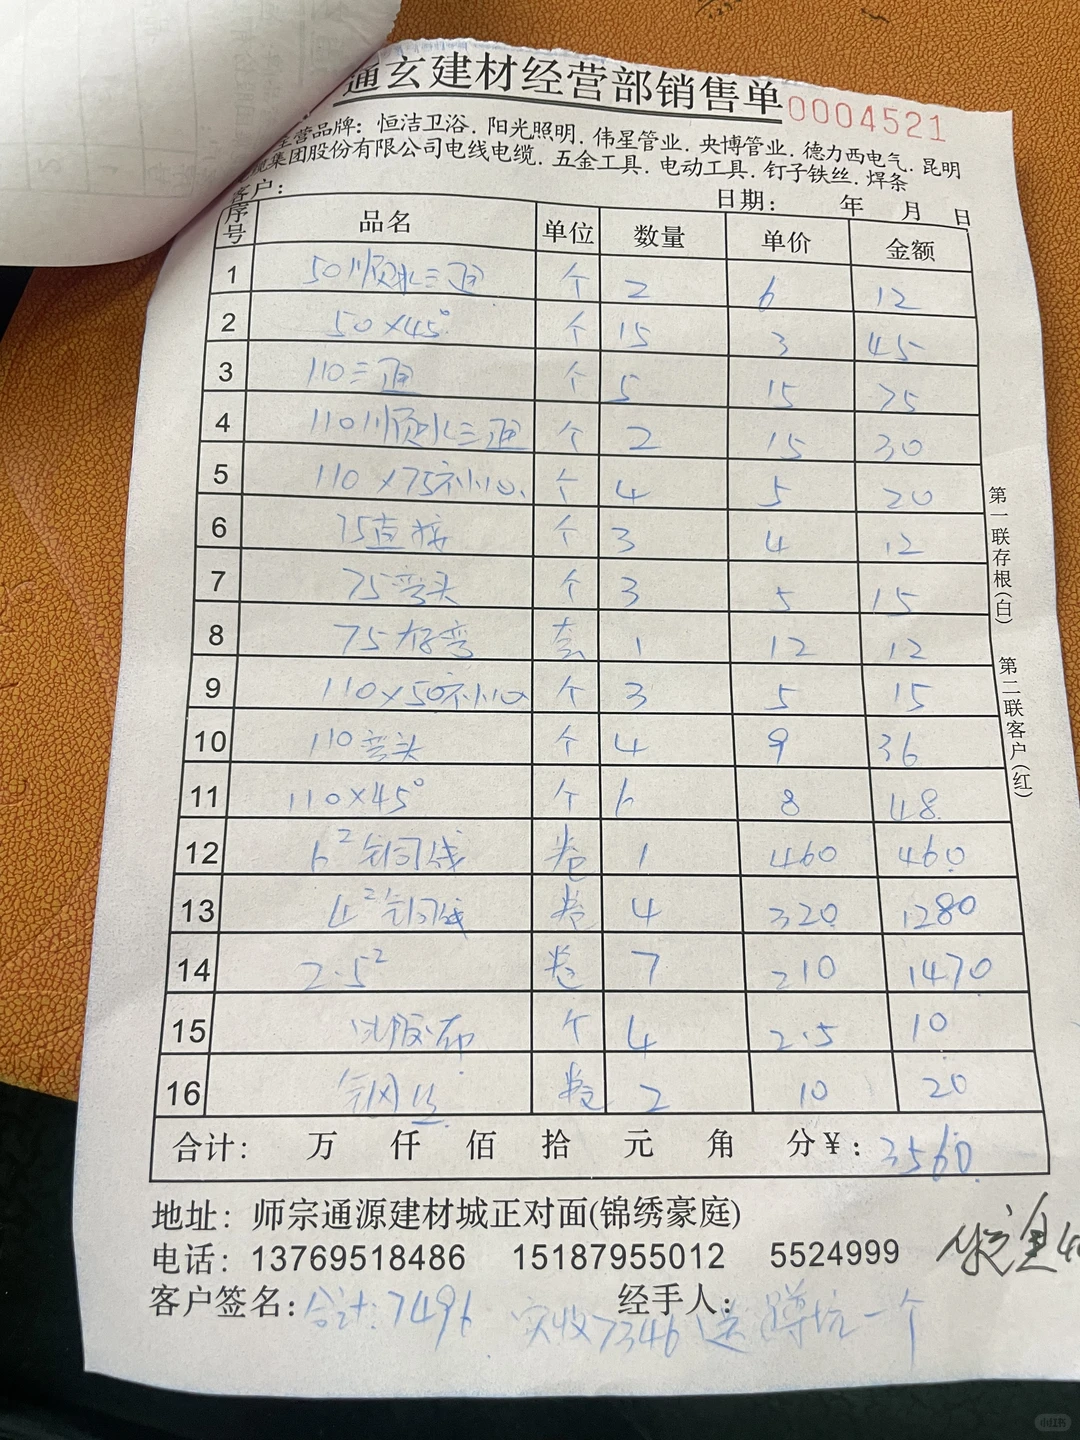 通玄建材经营部销售单 0004521
经营品牌：恒洁卫浴．阳光照明．伟星管业．央博管业．德力西电气．昆明
缆集团股份有限公司电线电缆．五金工具．电动工具．钉子铁丝．焊条
客户： 日期： 年 月 日
序号 品名 单位 数量 单价 金额
1 50顺水三通 个 2 6 12
2 50×45° 个 15 3 45
3 110三通 个 5 15 75
4 110顺水三通 个 2 15 30
5 110×75补心 个 4 5 20
6 75直接 个 3 4 12
7 75弯头 个 3 5 15
8 75存弯 套 1 12 12
9 110×50补心 个 3 5 15
10 110弯头 个 4 9 36
11 110×45° 个 6 8 48
12 6² 铜线 卷 1 460 460
13 4² 铜线 卷 4 320 1280
14 2.5² 卷 7 210 1470
15 胶布 个 4 2.5 10
16 钢丝 卷 2 10 20
合计： 万 仟 佰 拾 元 角 分￥：3560
第一联存根(白)
第二联客户(红)
地址：师宗通源建材城正对面(锦绣豪庭)
电话：13769518486 15187955012 5524999
客户签名： 经手人：
合计：7496 实收7346 送蹲坑一个
小红书